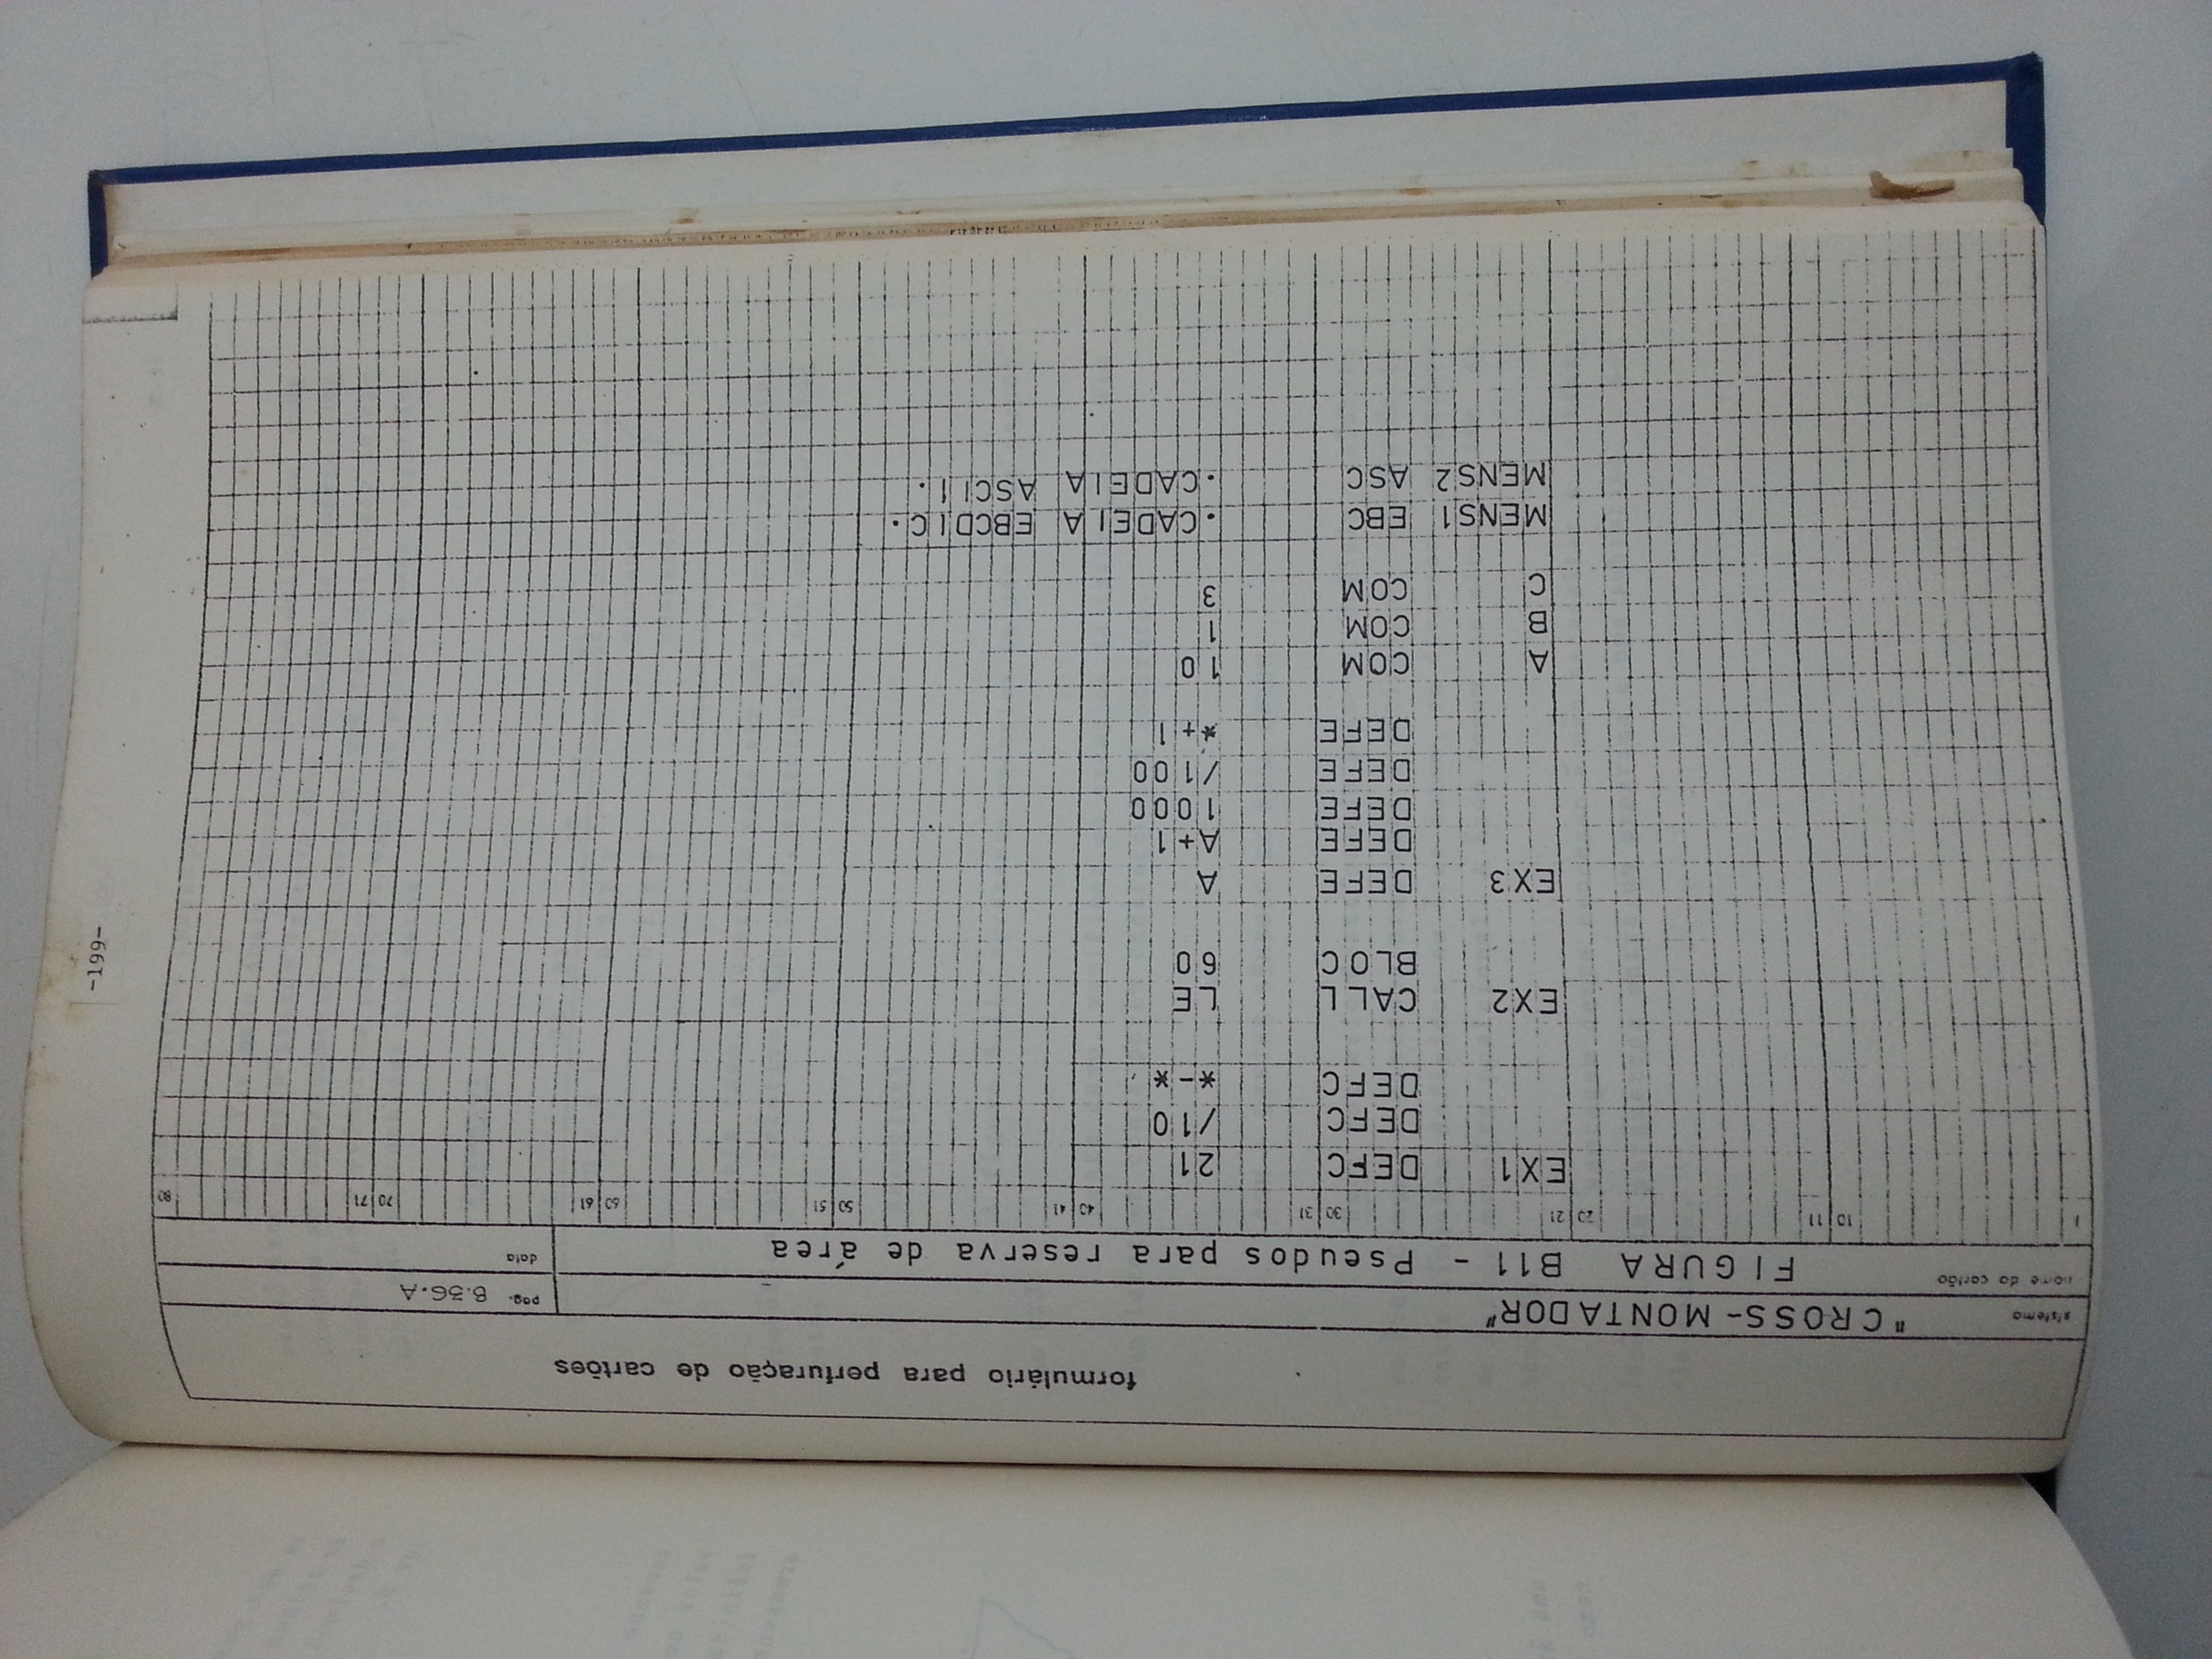 -199-
formulário para perfuração de cartões
sistema "CROSS-MONTADOR" pag. B.36.A
nome do cartão FIGURA B11 - Pseudos para reserva de área data
1 10 11 20 21 30 31 40 41 50 51 60 61 70 71 80
EX1 DEFC 21
DEFC /10
DEFC *-*
EX2 CALL LE
BLOC 60
EX3 DEFE A
DEFE A+1
DEFE 1000
DEFE /100
DEFE *+1
A COM 10
B COM 1
C COM 3
MENS1 EBC .CADEIA EBCDIC.
MENS2 ASC .CADEIA ASCII.